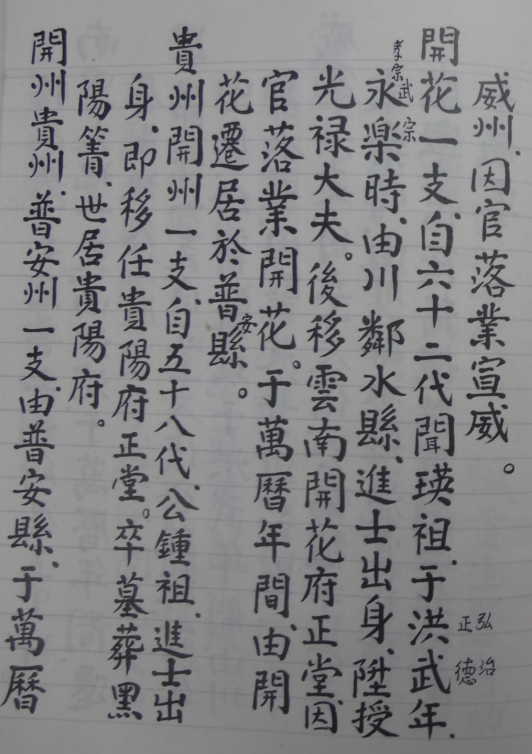 威州、因官落業宣威。
開花一支、自六十二代聞瑛祖、于洪武年、
弘治
正德
永楽時、由川鄰水縣、進士出身、陞授
孝宗
武宗
光禄大夫。後移雲南開花府正堂、因
官落業開花。于萬曆年間、由開
花遷居於普安縣。
貴州開州一支、自五十八代、公鍾祖、進士出
身、即移任貴陽府正堂。卒墓葬黑
陽箐、世居貴陽府。
開州貴州、普安州一支、由普安縣、于萬曆